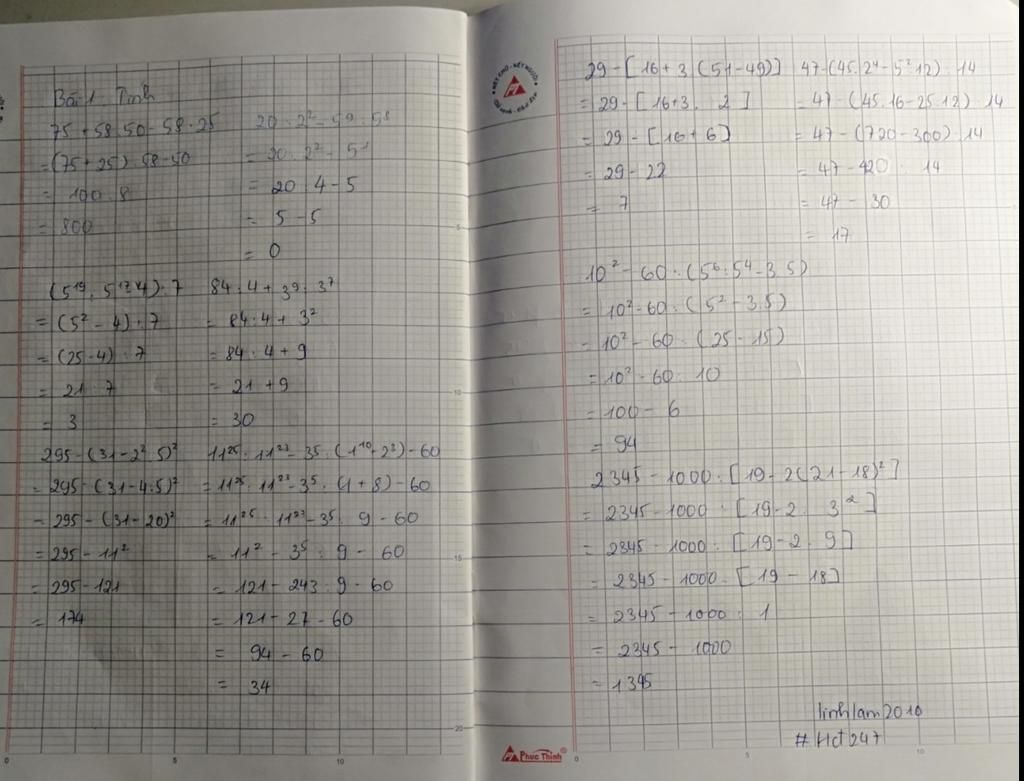 Bài 1. Tính
75 + 58.50 - 58.25
= (75 + 25) . 58 - 50
= 100 . 8
= 800
20 : 2² - 5⁹ : 5⁸
= 20 : 2² - 5¹
= 20 : 4 - 5
= 5 - 5
= 0
(5¹⁹ : 5¹⁷ - 4) : 7
= (5² - 4) : 7
= (25 - 4) : 7
= 21 : 7
= 3
84 : 4 + 3⁹ : 3⁷
= 84 : 4 + 3²
= 84 : 4 + 9
= 21 + 9
= 30
295 - (31 - 2² . 5)²
= 295 - (31 - 4.5)²
= 295 - (31 - 20)²
= 295 - 11²
= 295 - 121
= 174
11²⁵ : 11²³ - 3⁵ : (1¹⁰ + 2³) - 60
= 11²⁵ : 11²³ - 3⁵ : (1 + 8) - 60
= 11²⁵ : 11²³ - 3⁵ : 9 - 60
= 11² - 3⁵ : 9 - 60
= 121 - 243 : 9 - 60
= 121 - 27 - 60
= 94 - 60
= 34
NÉT CHỮ - NẾT NGƯỜI
Phuc Thinh®
29 - [16 + 3 (51 - 49)]
= 29 - [16 + 3 . 2]
= 29 - [16 + 6]
= 29 - 22
= 7
47 - (45 . 2⁴ - 5² . 12) : 14
= 47 - (45 . 16 - 25 . 12) : 14
= 47 - (720 - 300) : 14
= 47 - 420 : 14
= 47 - 30
= 17
10² - 60 : (5⁶ : 5⁴ - 3.5)
= 10² - 60 : (5² - 3.5)
= 10² - 60 : (25 - 15)
= 10² - 60 : 10
= 100 - 6
= 94
2345 - 1000 : [19 - 2(21 - 18)²]
= 2345 - 1000 : [19 - 2 . 3²]
= 2345 - 1000 : [19 - 2 . 9]
= 2345 - 1000 : [19 - 18]
= 2345 - 1000 : 1
= 2345 - 1000
= 1345
linhlam2010
#Hct247